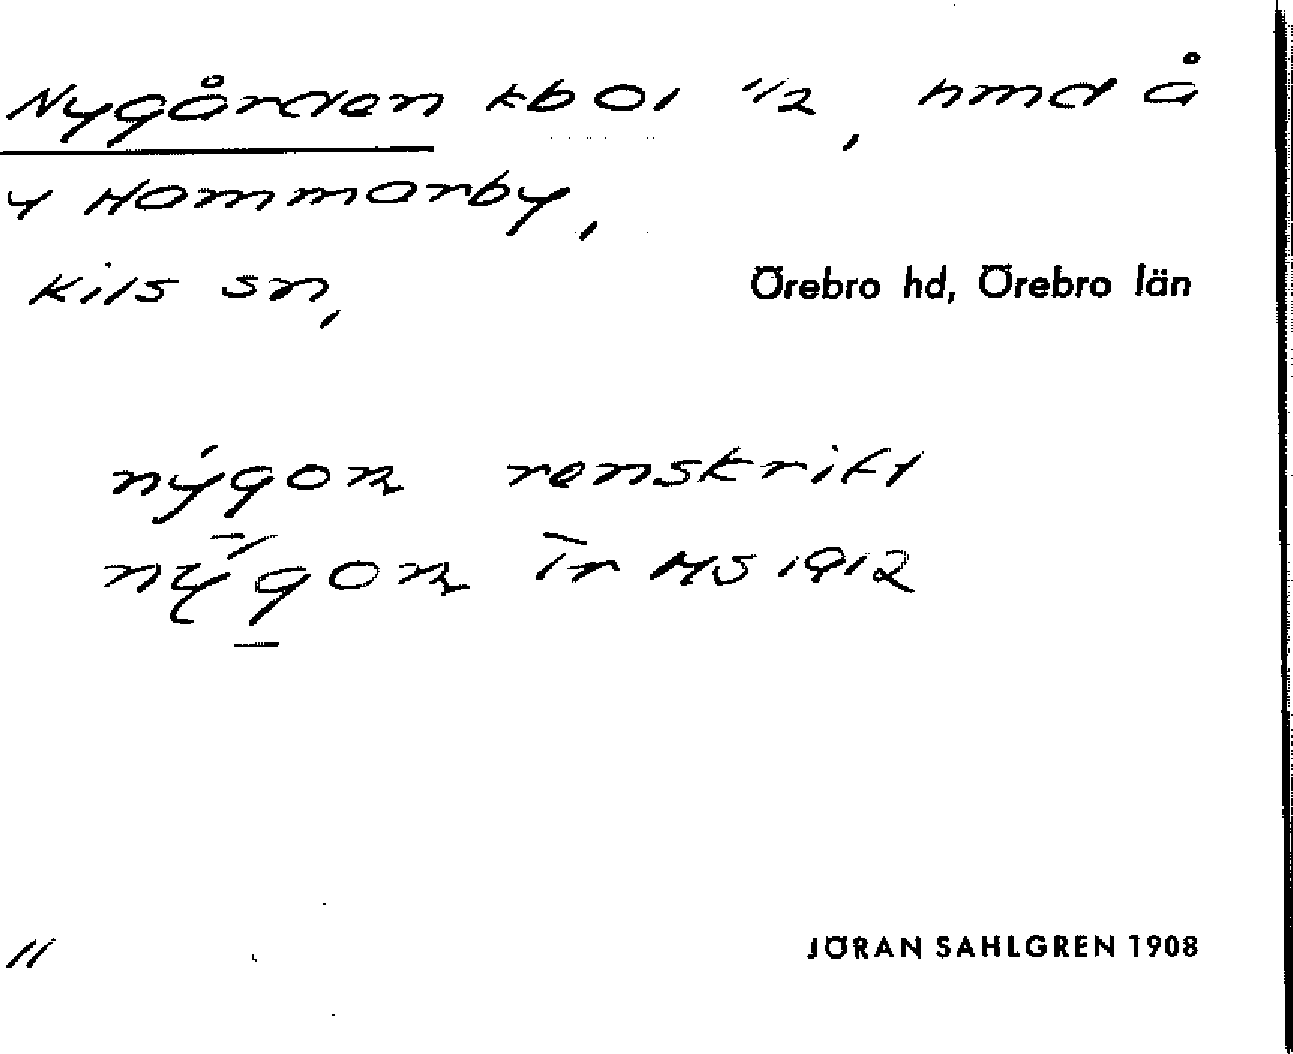 Nygården kb 01 1/2, hmd å
y Hammarby,
Kils sn, Örebro hd, Örebro län
nýgoɳ renskrift
nȳ́goɳ Ir MS 1912
11
JÖRAN SAHLGREN 1908